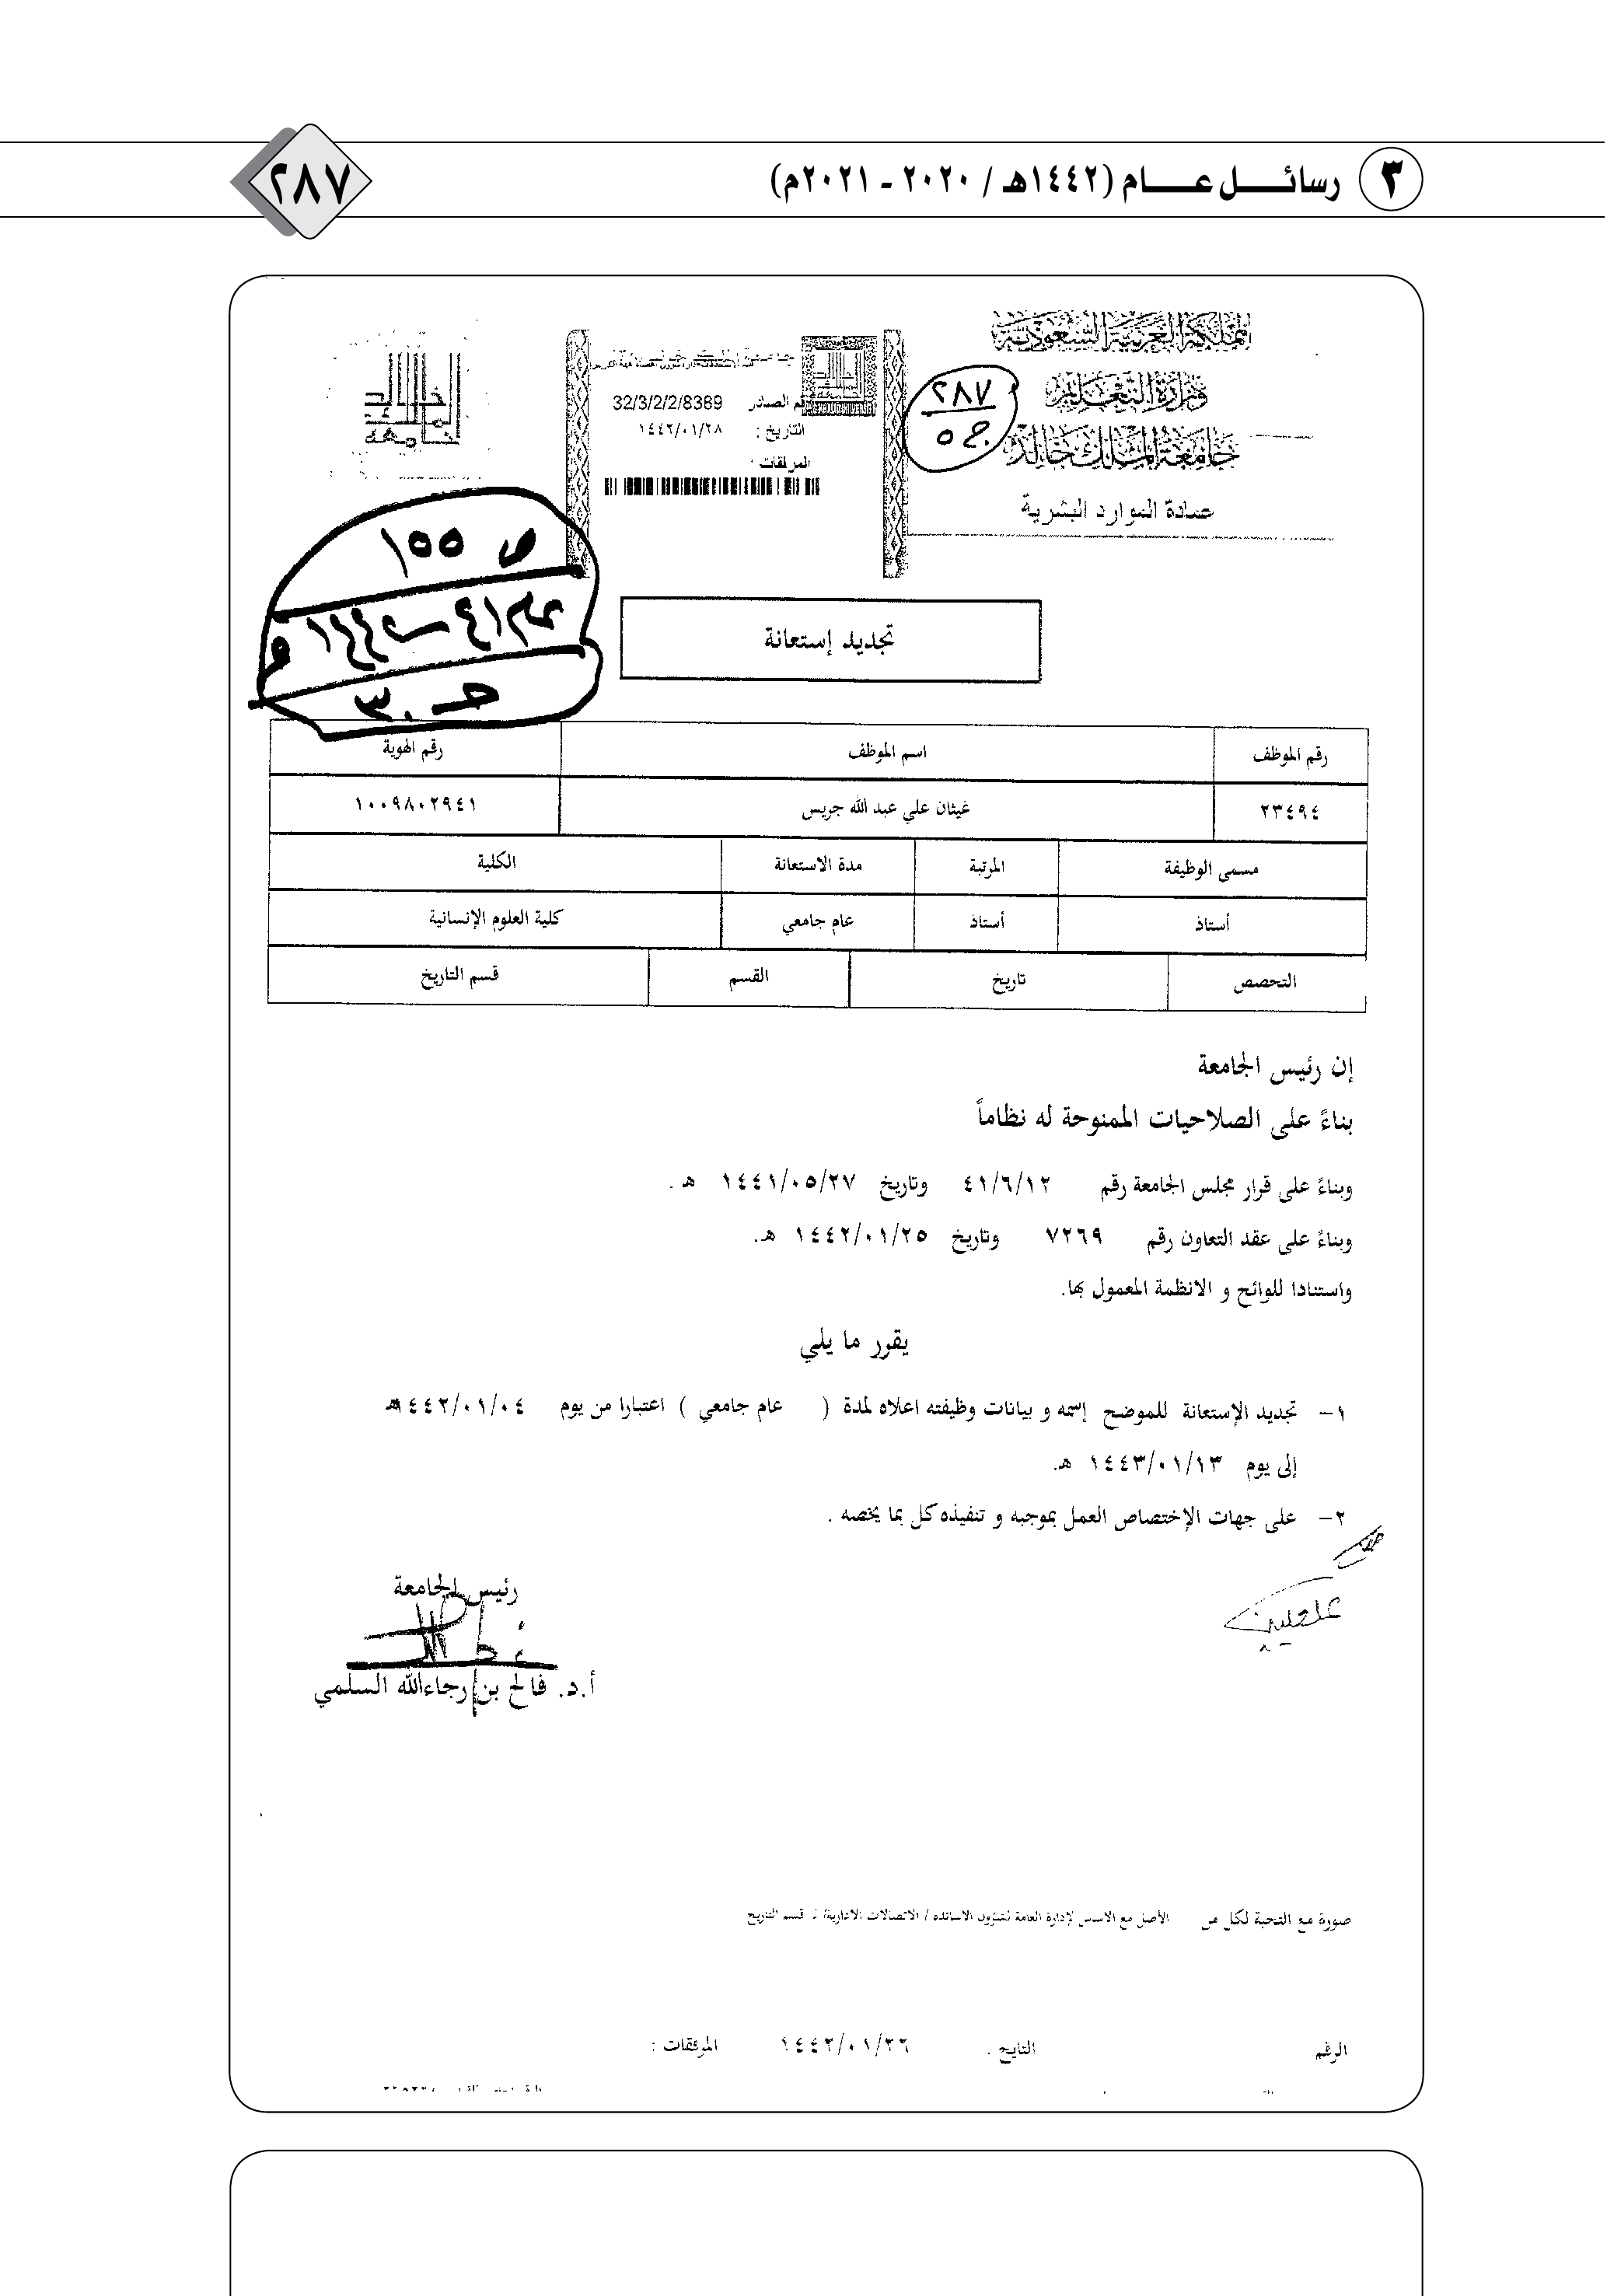 ٣ رسائل عام (١٤٤٢هـ / ٢٠٢٠ - ٢٠٢١م)
٢٨٧
المملكة العربية السعودية
وزارة التعليم
جامعة الملك خالد
عمادة الموارد البشرية
٢٨٧
ج ٥
رقم الصادر 32/3/2/2/8389
التاريخ : ١٤٤٢/٠١/٢٨
المرفقات :
جامعة الملك خالد
ص ١٥٥
عام ٤١ - ١٤٤٢هـ
جـ ٣٠
تجديد إستعانة
رقم الموظف اسم الموظف رقم الهوية
٢٣٤٩٤ غيثان علي عبد الله جريس ١٠٠٩٨٠٢٩٤١
مسمى الوظيفة المرتبة مدة الاستعانة الكلية
أستاذ أستاذ عام جامعي كلية العلوم الإنسانية
التخصص تاريخ القسم قسم التاريخ
إن رئيس الجامعة
بناءً على الصلاحيات الممنوحة له نظاماً
وبناءً على قرار مجلس الجامعة رقم ٤١/٦/١٢ وتاريخ ١٤٤١/٠٥/٢٧ هـ .
وبناءً على عقد التعاون رقم ٧٢٦٩ وتاريخ ١٤٤٢/٠١/٢٥ هـ.
واستنادا للوائح و الانظمة المعمول بها.
يقرر ما يلي
١- تجديد الإستعانة للموضح إسمه و بيانات وظيفته اعلاه لمدة ( عام جامعي ) اعتبارا من يوم ١٤٤٢/٠١/٠٤هـ
إلى يوم ١٤٤٣/٠١/١٣ هـ.
٢- على جهات الإختصاص العمل بموجبه و تنفيذه كل بما يخصه .
رئيس الجامعة
أ.د. فالح بن رجاءالله السلمي
صورة مع التحية لكل من الأصل مع الاساس لإدارة العامة لشؤون الاساتذه / الاتصالات الادارية/ قسم التاريخ
الرقم التاريخ . ١٤٤٢/٠١/٢٦ المرفقات :